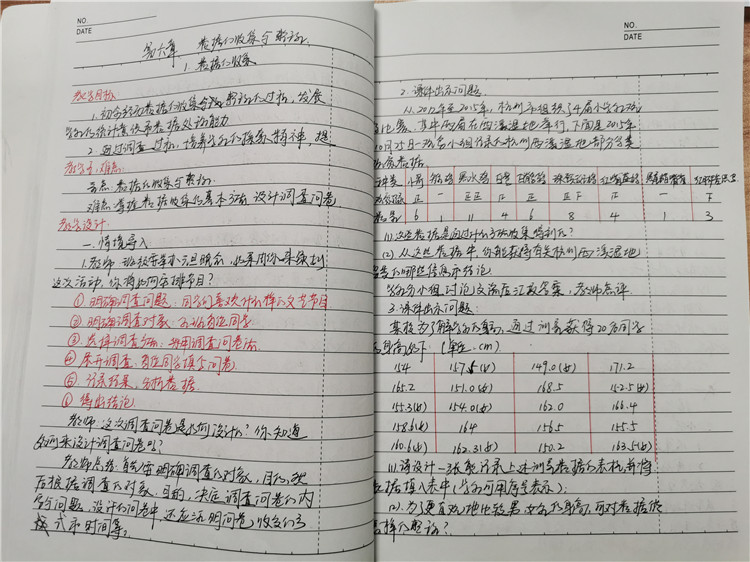 NO.
DATE
第六章 数据的收集与整理
1. 数据的收集
教学目标:
1. 初步经历数据的收集与整理的过程,发展
学生的统计意识和数据处理能力
2. 通过调查过程,培养学生的探索精神,
教学重、难点:
重点: 数据的收集与整理
难点: 掌握数据收集的基本方法 设计调查问卷
教学设计:
一. 情境导入
1. 教师: 班级要举办元旦晚会,如果用你来策划
这次活动,你将如何安排节目?
① 明确调查问题: 同学们喜欢什么样的文艺节目
② 明确调查对象: 班的每位同学
③ 选择调查方法: 采用调查问卷法
④ 展开调查: 每位同学填写问卷
⑤ 记录结果,分析数据
⑥ 得出结论
教师: 这次调查问卷是如何设计的? 你知道
如何来设计调查问卷吗?
教师总结: 首先应明确调查的对象、目的,然
后根据调查的对象、目的,决定调查问卷的内
容与问题,设计的问卷中,还应说明问卷收台的方
式和时间等。
NO.
DATE
2. 课件出示问题:
(1) 2012年至2015年,杭州市组织了4届小学的观
鸟比赛,其中两届在西溪湿地举行,下面是2015年
10月25日一观鸟小组记录的杭州西溪湿地部分鸟类
数据
6 1 11 4 6 8 4 1 3
(1) 这些数据是通过什么方法收集得到的?
(2) 从这些数据中,你能获得有关杭州西溪湿地
鸟类的哪些信息和结论
学生分小组讨论交流后汇报答案,教师点评.
3. 课件出示问题:
某校为了解学生的身高,通过测量获得20名同学
身高如下: (单位: cm)
154 157.5(女) 149.0(女) 171.2
165.2 151.0(女) 168.5 152.5(女)
155.3(女) 154.0(女) 162.0 166.4
158.6(女) 164 156.5 155.5
160.6(女) 162.3(女) 150.2 163.5(女)
(1) 请设计一张能记录上述测量数据的表格,并将
数据填入表中 (学生可用序号表示);
(2) 为了更直观地比较男女生的身高,可对数据做
怎样的整理?